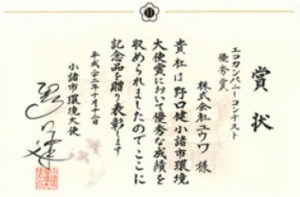 賞状
エコカンパニーコンテスト
優秀賞
株式会社ユウワ 様
貴社は野口健小諸市環境
大使賞において優秀な成績を
収められましたのでここに
記念品を贈り表彰します
平成二十二年十月十二日
小諸市環境大使
野口健